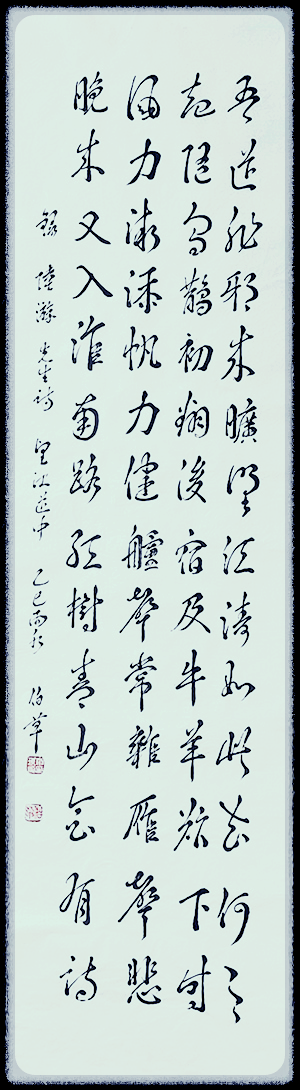 吾道非邪來曠野江濤如此去何之
起隨烏鵲初翻後宿及牛羊欲下時
風力漸添帆力健艣聲常雜雁聲悲
晚來又入淮南路紅樹青山合有詩
錄 陸游先生詩 望江道中 乙巳 伯華